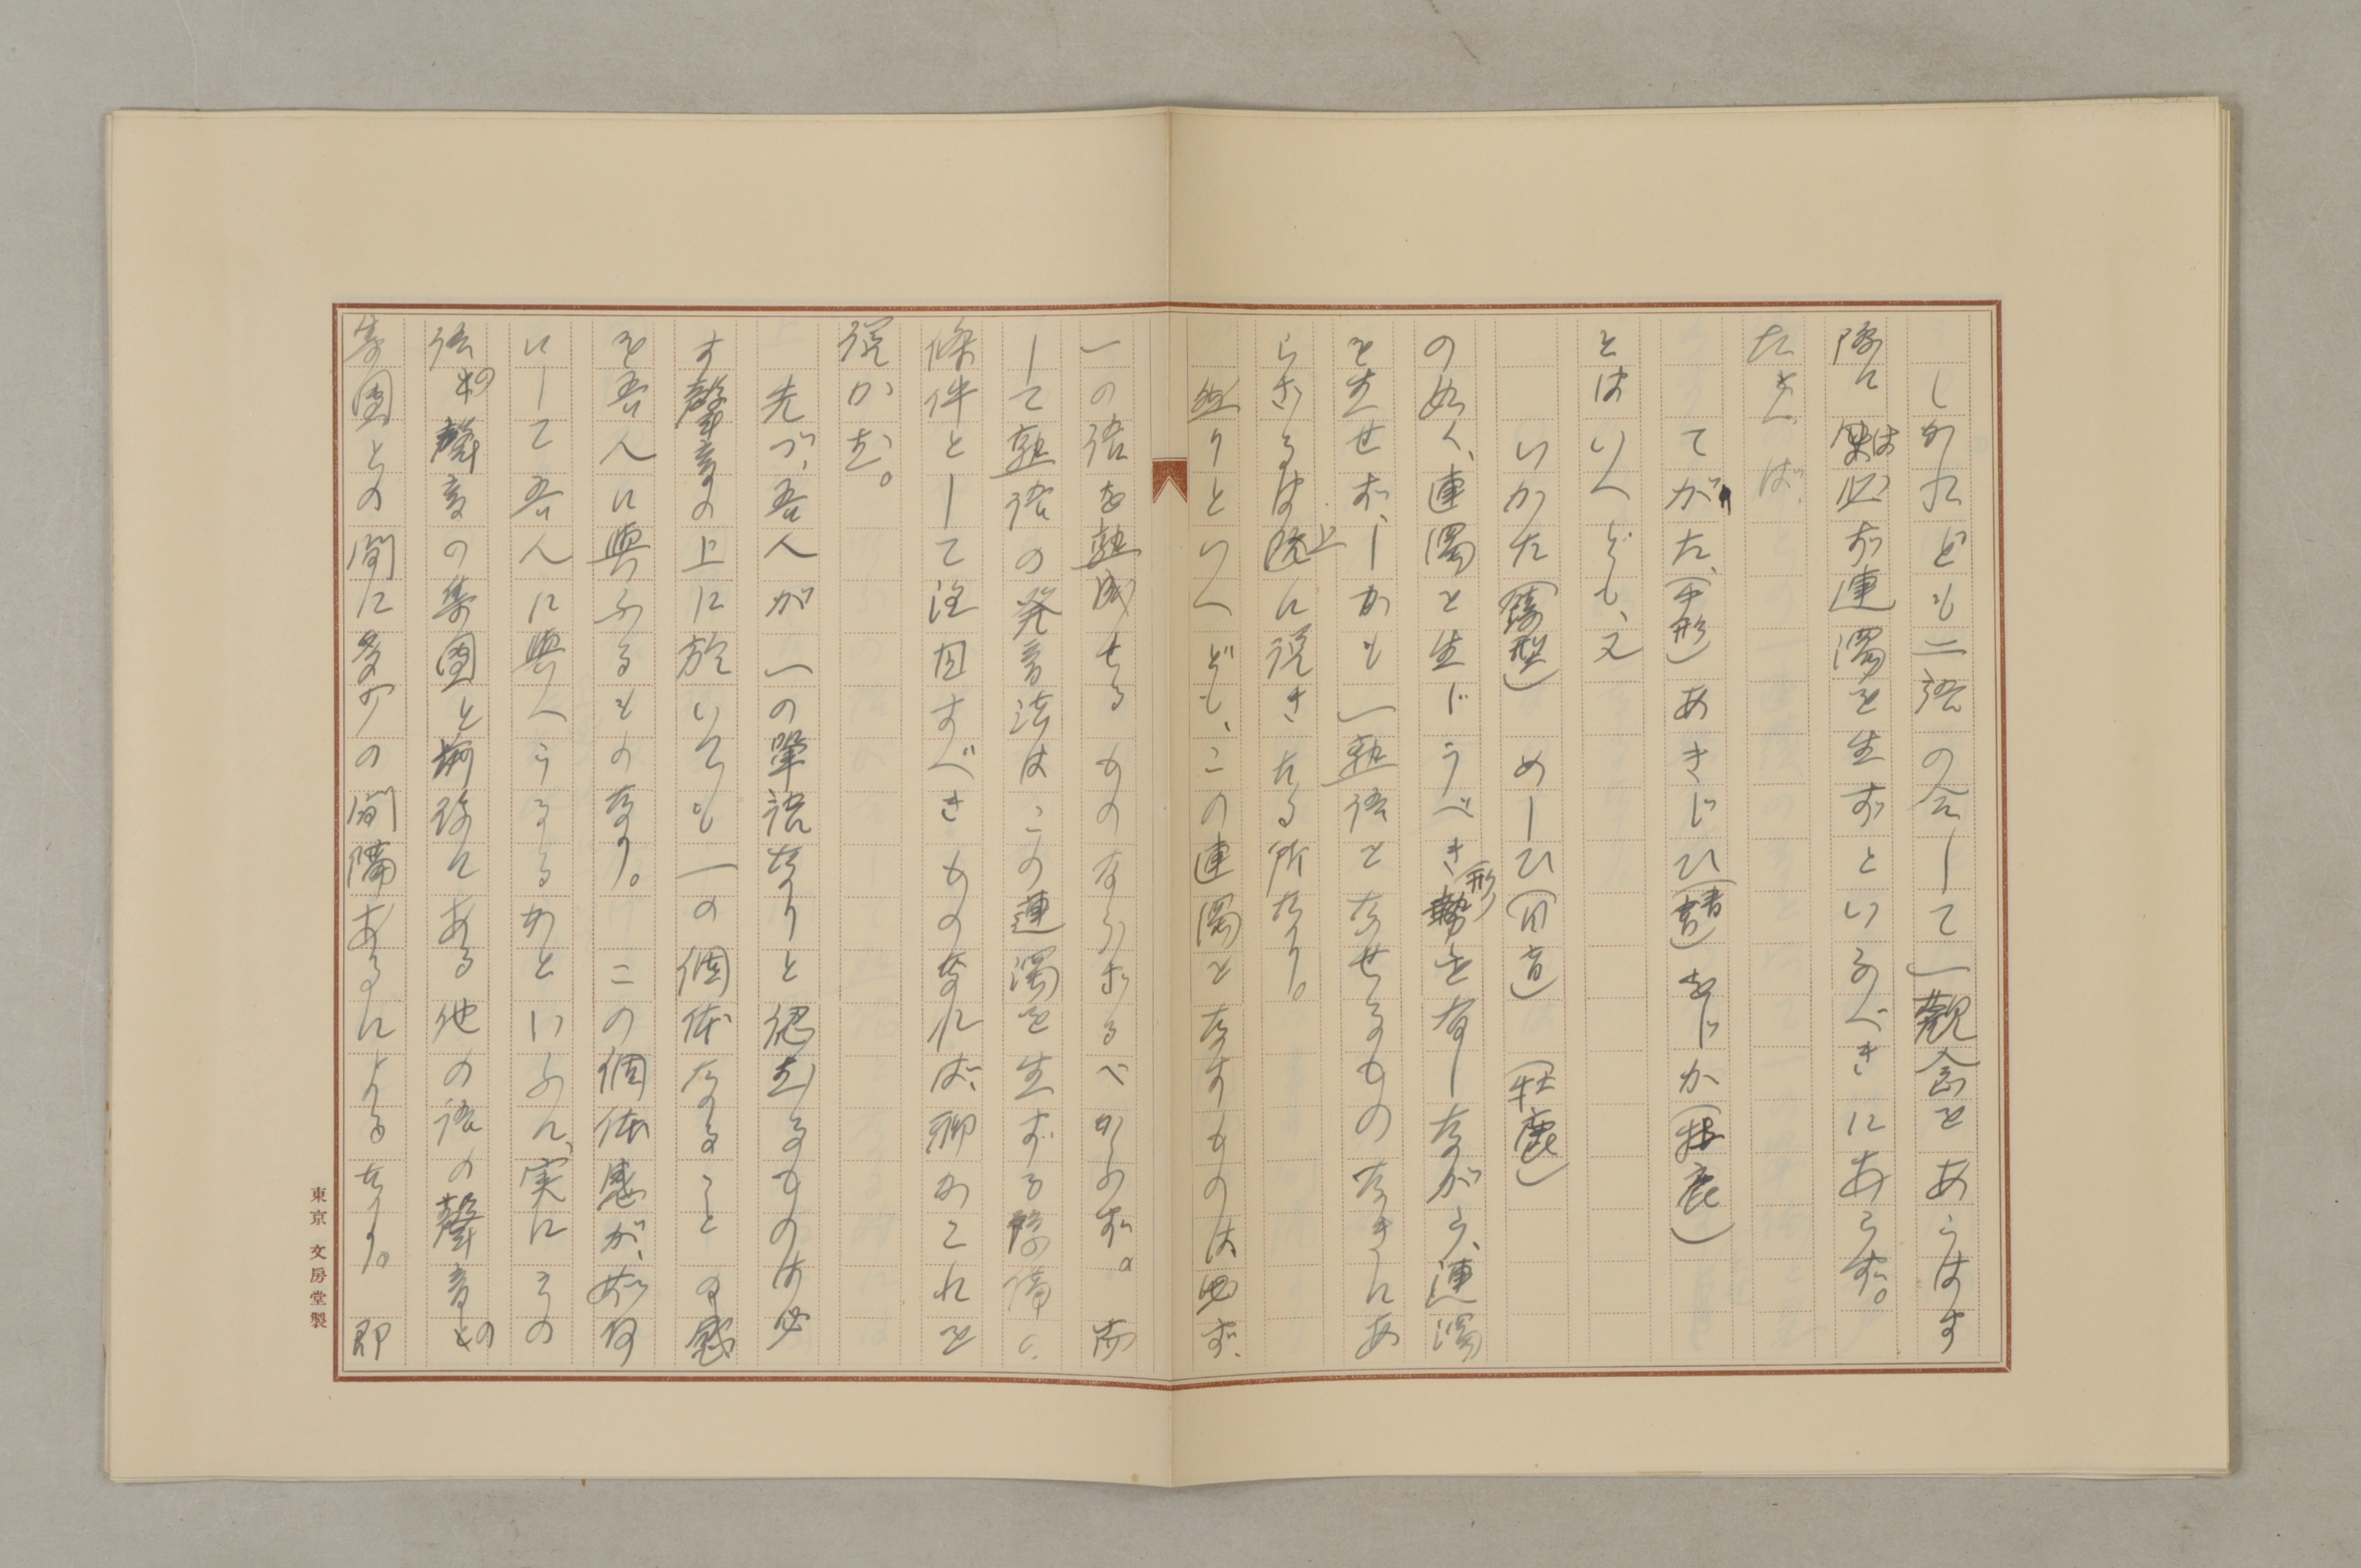 しかれども二語の合して一観念をあらはす
際には必ず連濁を生ずといふべきにあらず。
たとへば、
てがた、(手形)あきじひ(清盲)をじか(牡鹿)
とはいへども、又
いかた(鋳型) めしひ(目盲) (牡鹿)
の如く、連濁を生じうべき形を有しながら、連濁
を生せず、しかも一熟語をなせるものなきにあ
らざるは上に説きたる所なり。
然りといへども、この連濁をなすものは必ず、
一の語を熟成せるものならざるべからず。而
して熟語の発音法はこの連濁を生ずる
條件として注目すべきものなれば、聊かこれを
説かむ。
先づ、吾人が一の単語なりと認むるものは必
す聲音の上に於いても一の個体なることの感
を吾人に與ふるものなり。この個体感が、如何
にして吾人に與へらるるかといふに、実にその
語の聲音の集團と前後にある他の語の聲音の
集團との間に多少の間隔あるによるなり。即
東京 文房堂製